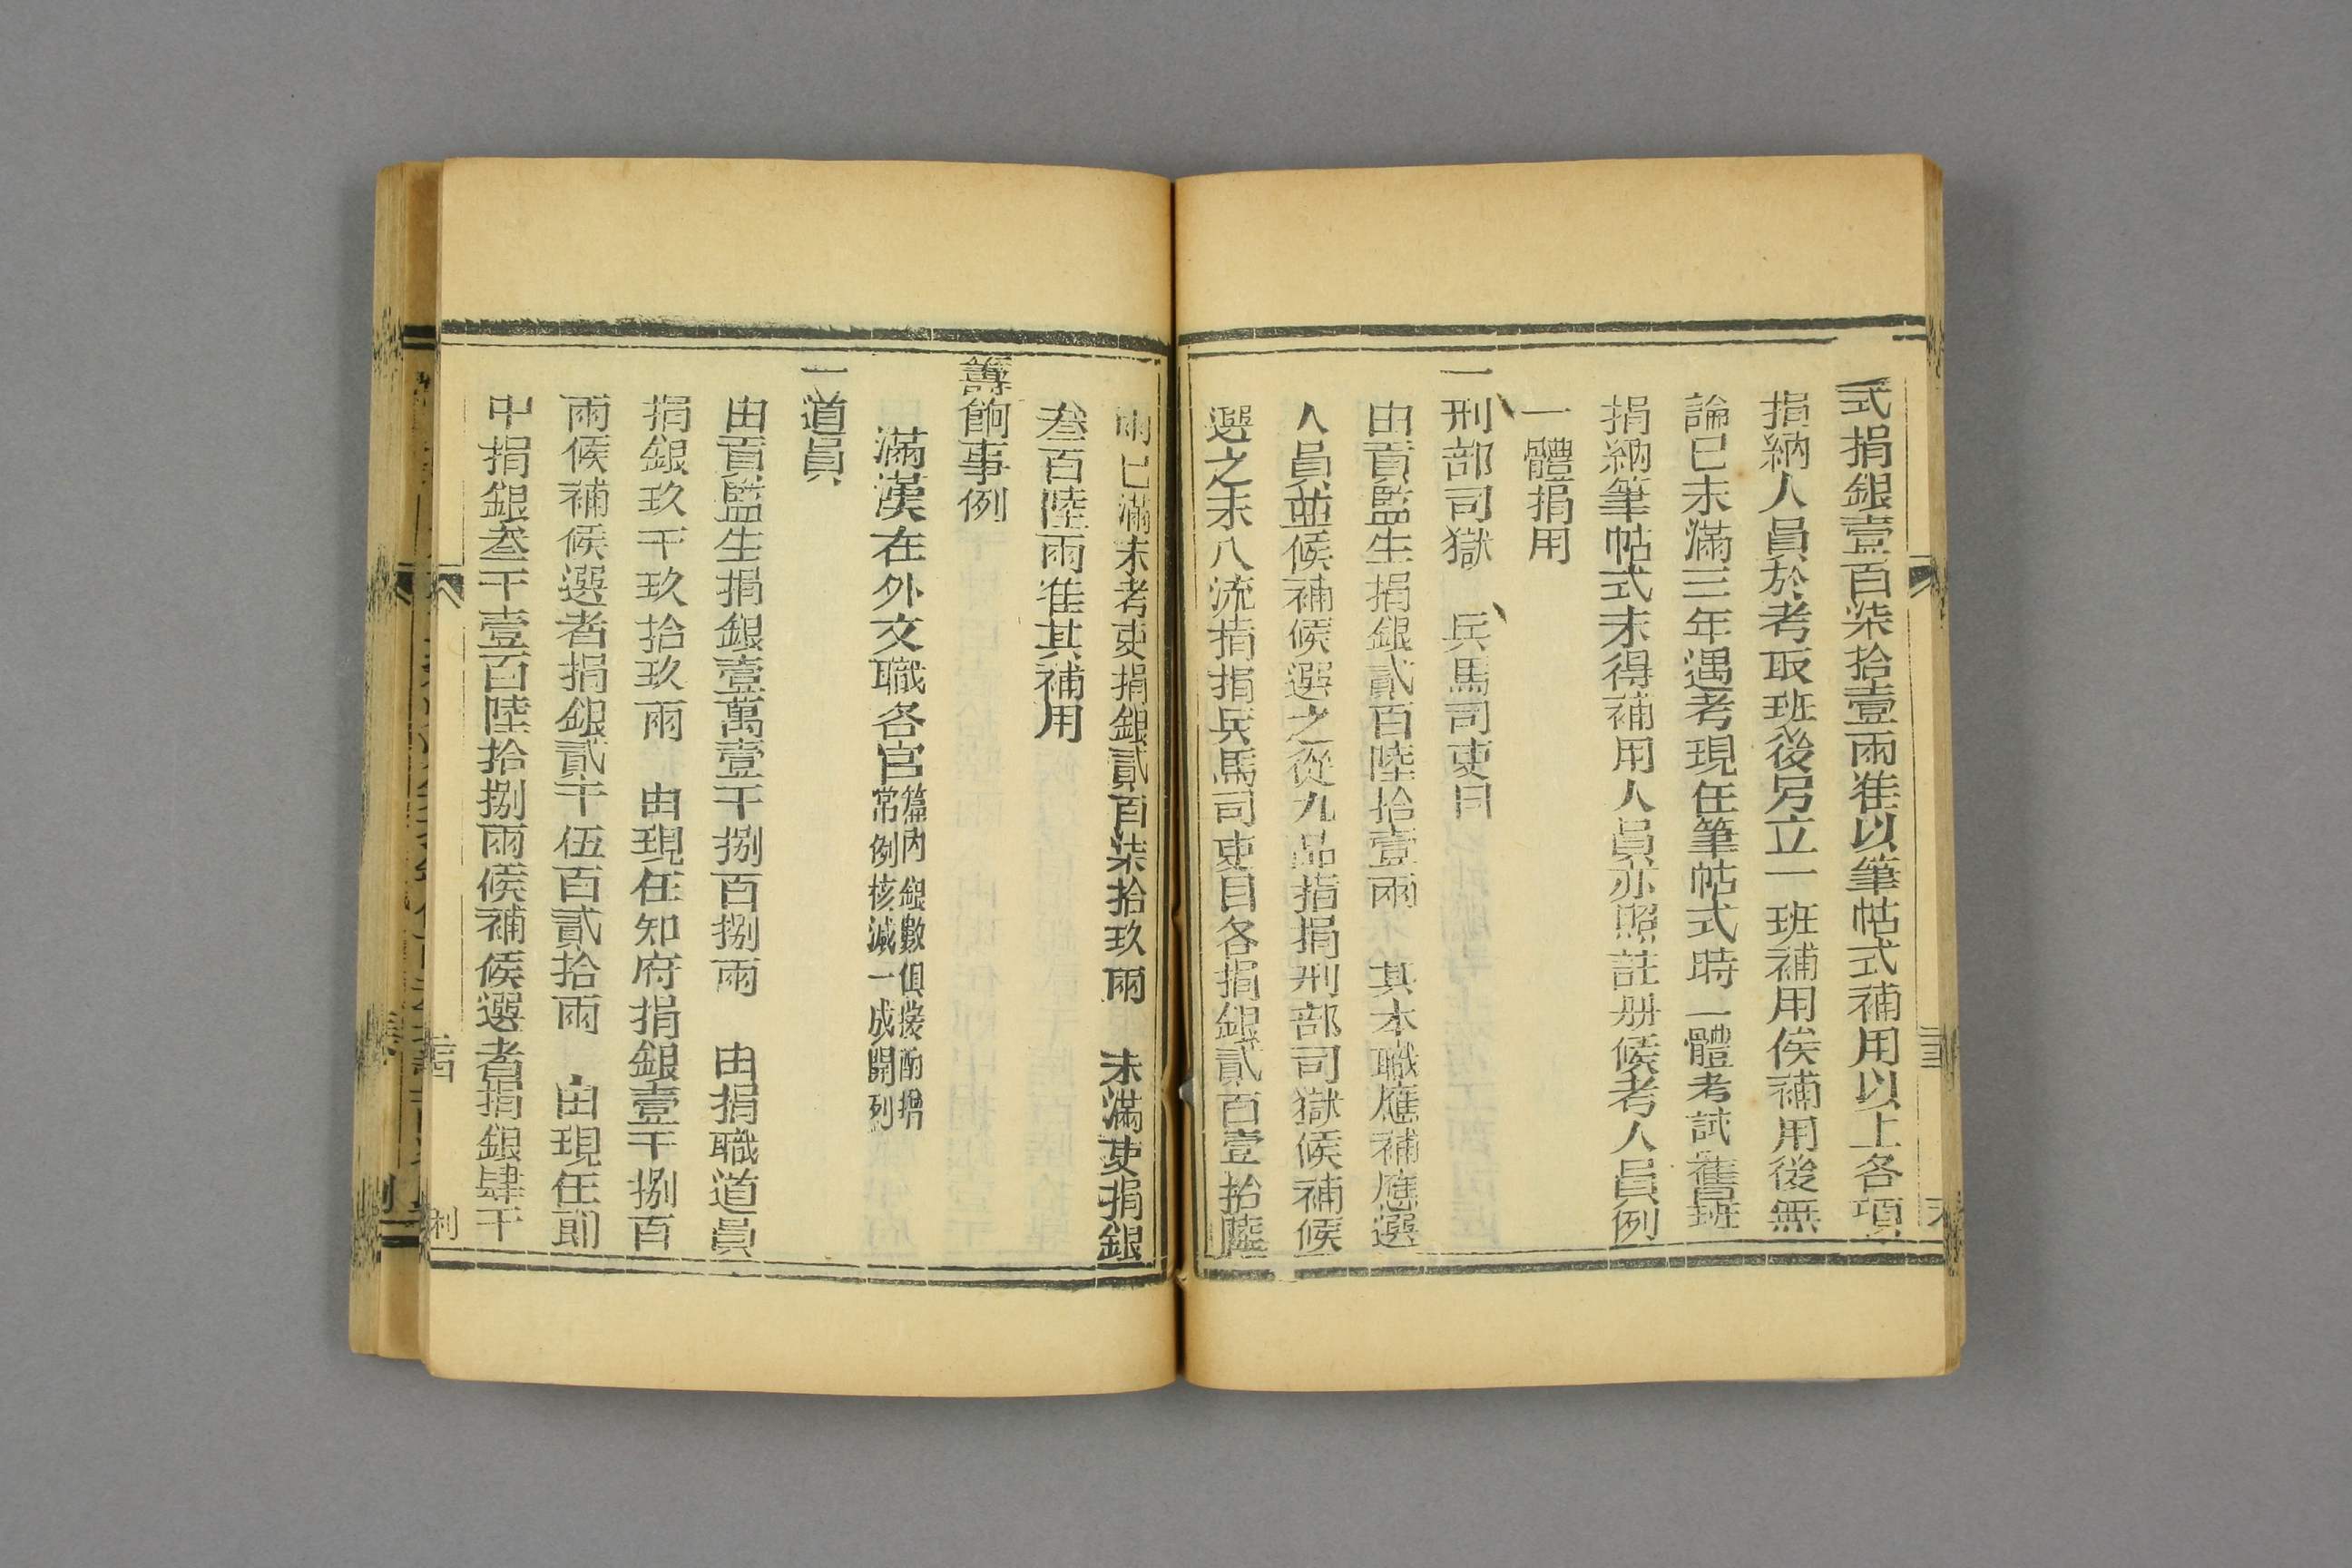 式捐銀壹百柒拾壹兩准以筆帖式補用以上各項
捐納人員於考取班後另立一班補用俟補用後無
論已未滿三年遇考現任筆帖式時一體考試舊班
捐納筆帖式未得補用人員亦照註册候考人員例
一體捐用
一刑部司獄 兵馬司吏目
由貢監生捐銀貳百陸拾壹兩 其本職應補應選
人員並候補候選之從九品指捐刑部司獄候補候
選之未入流指捐兵馬司吏目各捐銀貳百壹拾陸
兩已滿未考吏捐銀貳百柒拾玖兩 未滿吏捐銀
叁百陸兩准其補用
籌餉事例
滿漢在外文職各官篇內銀數俱按酌增
常例核減一成開列
一道員
由貢監生捐銀壹萬壹千捌百捌兩 由捐職道員
捐銀玖千玖拾玖兩 由現任知府捐銀壹千捌百
兩候補候選者捐銀貳千伍百貳拾兩 由現任郎
中捐銀叁千壹百陸拾捌兩候補候選者捐銀肆千